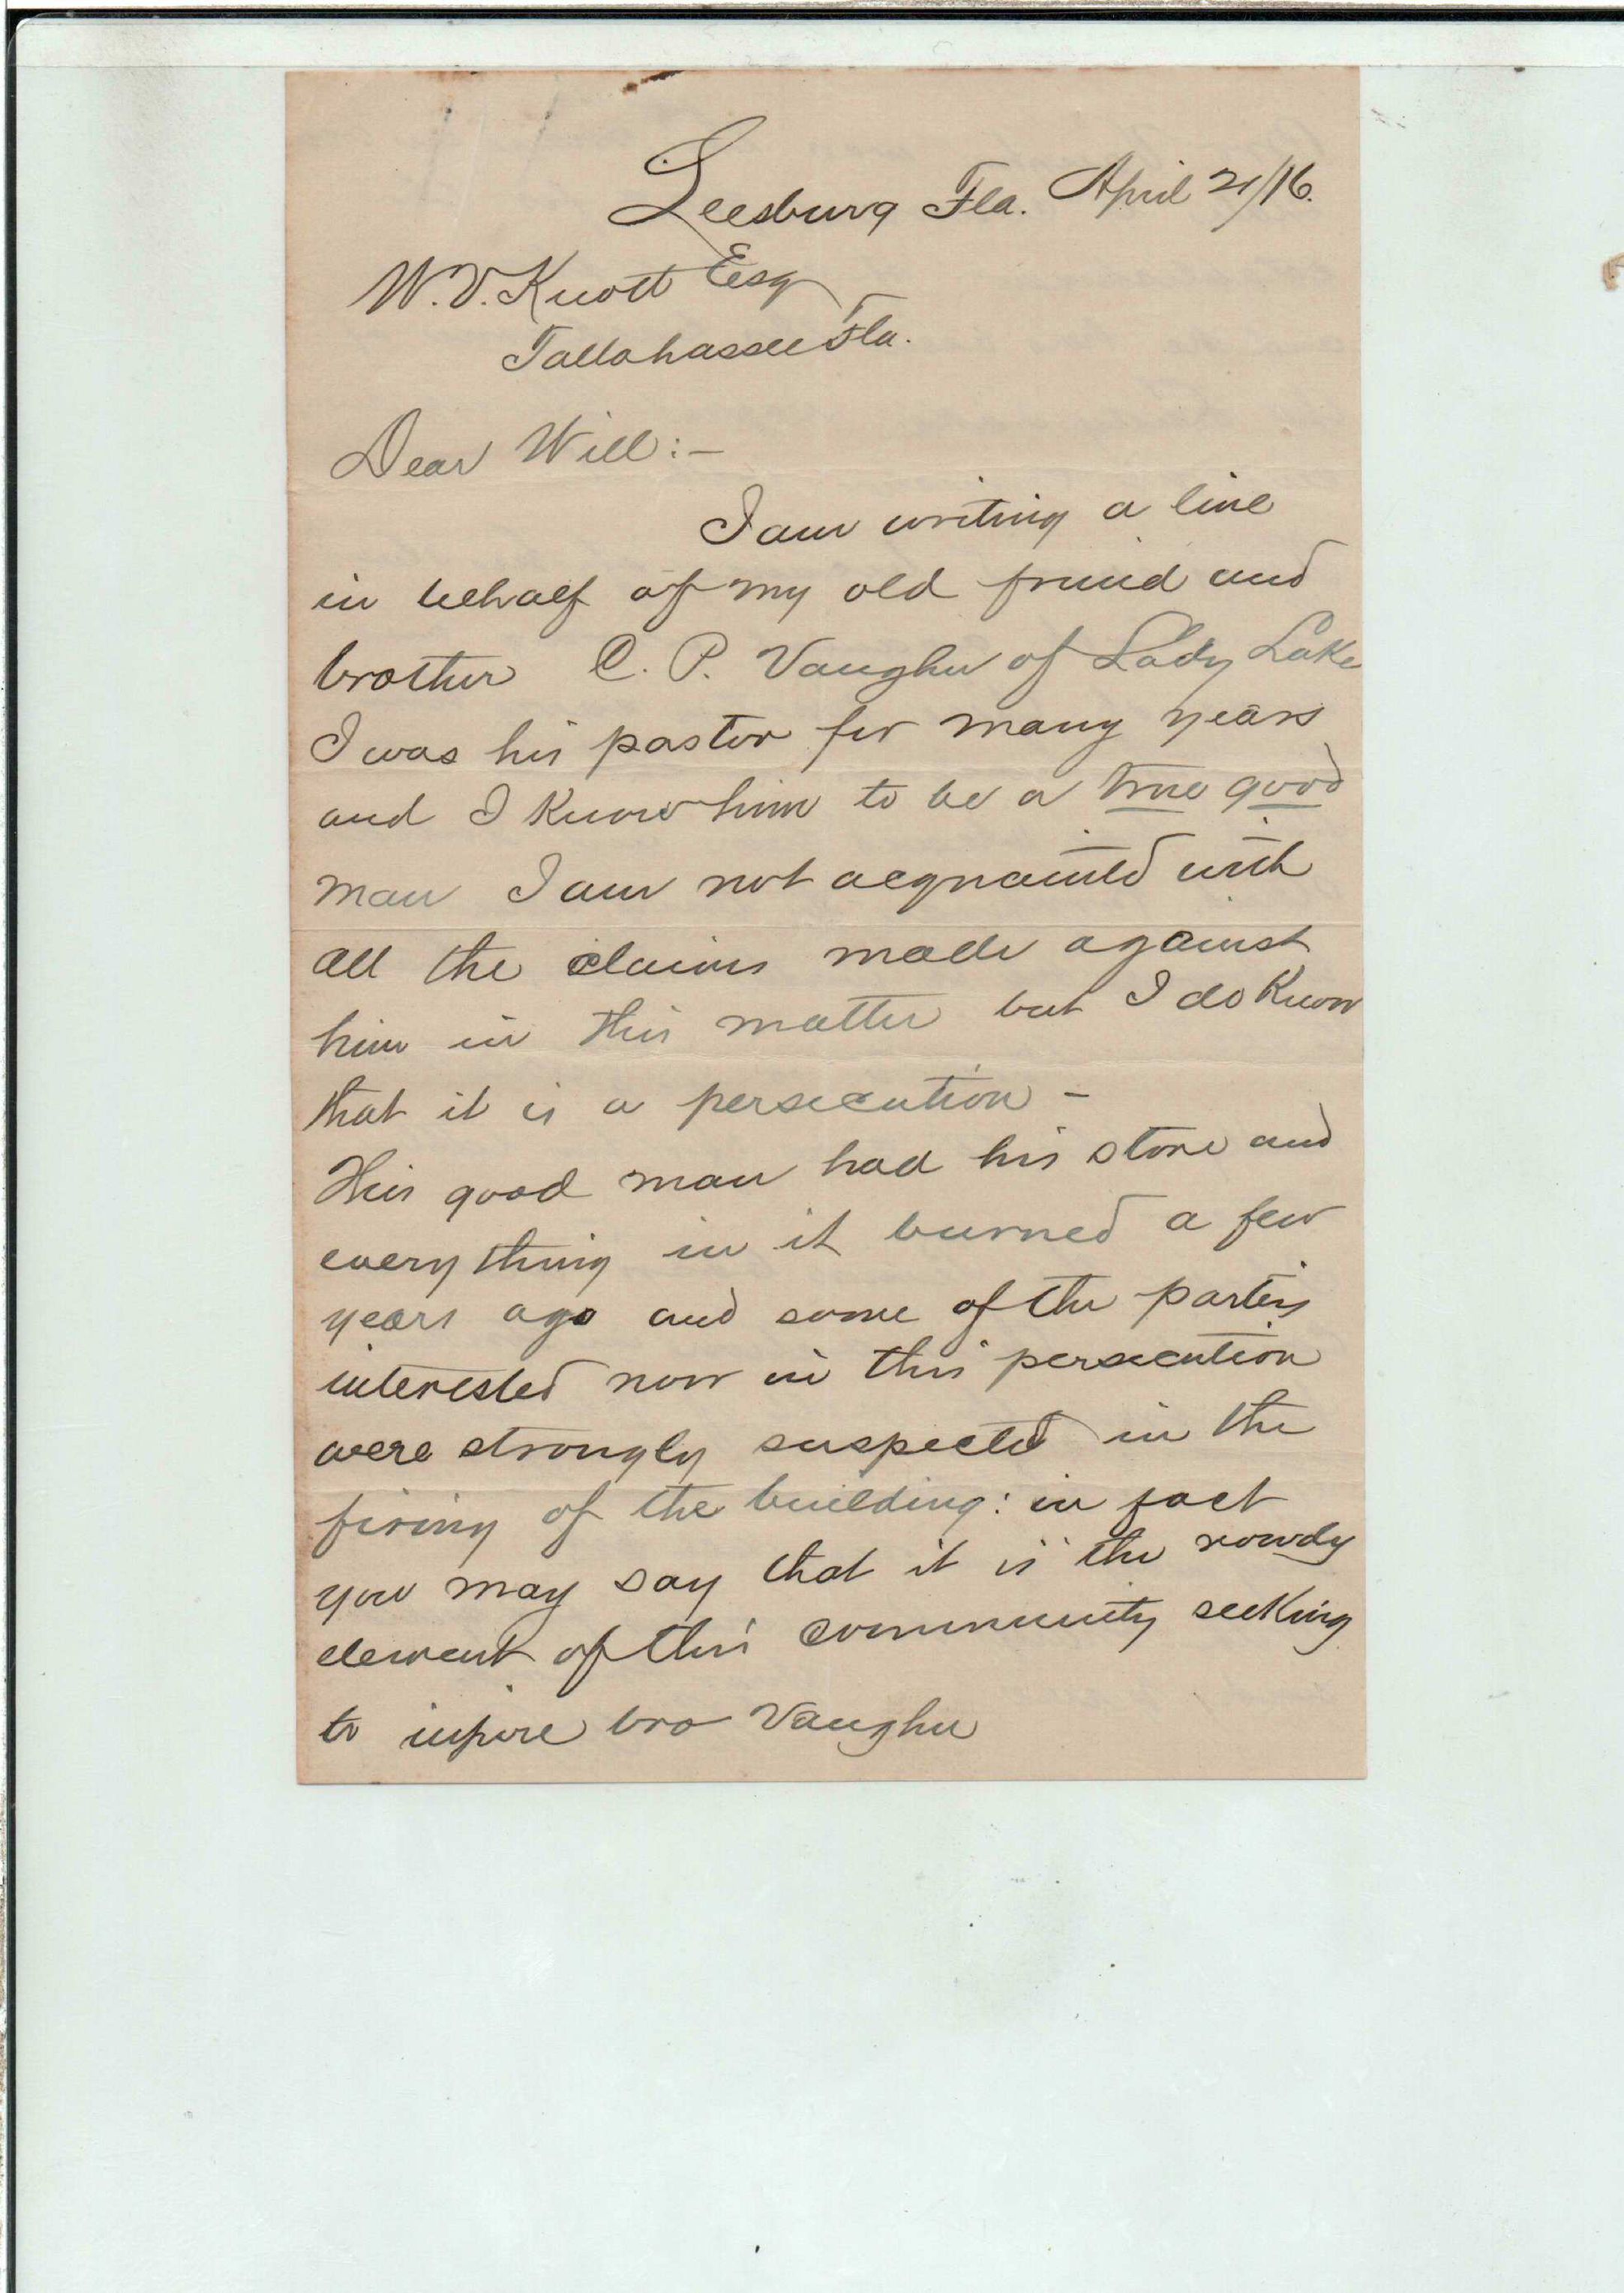 Leesburg Fla. April 21/16.
W.V. Knott Esq
Tallahassee Fla.
Dear Will:—
I am writing a line
in behalf of my old friend and
brother C. P. Vaughn of Lady Lake
I was his pastor for many years
and I know him to be a true good
man I am not acquainted with
all the claims made against
him in this matter but I do know
that it is a persecution —
This good man had his store and
everything in it burned a few
years ago and some of the parties
interested now in this persecution
were strongly suspected in the
firing of the building: in fact
you may say that it is the rowdy
element of this community seeking
to injure bro Vaughn